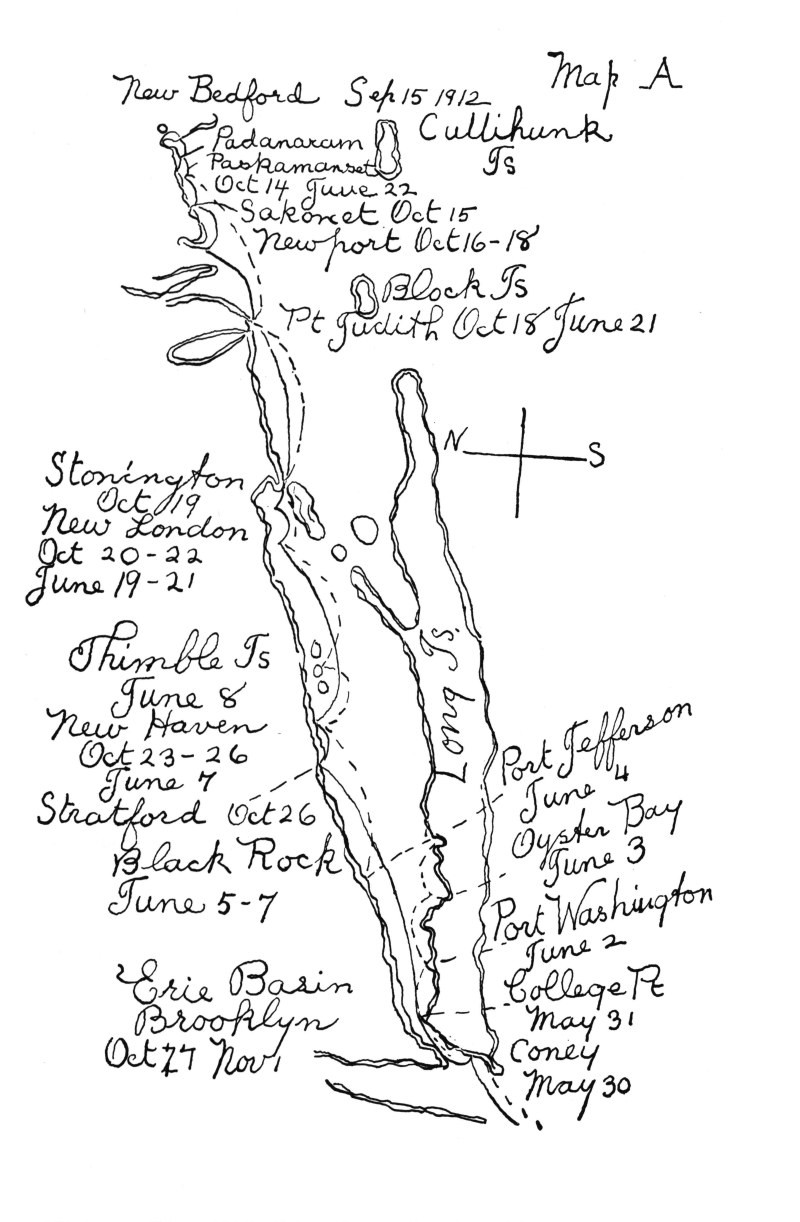 Map A
New Bedford Sep 15 1912
Cullihunk
Is
Padanaram
Paskamanset
Oct 14 June 22
Sakonet Oct 15
Newport Oct 16-18
Block Is
Pt Judith Oct 18 June 21
N S
Stonington
Oct 19
New London
Oct 20-22
June 19-21
Long Is.
Thimble Is
June 8
New Haven
Oct 23-26
June 7
Stratford Oct 26
Black Rock
June 5-7
Port Jefferson
June 4
Oyster Bay
June 3
Port Washington
June 2
College Pt
May 31
Coney
May 30
Erie Basin
Brooklyn
Oct 27 Nov 1